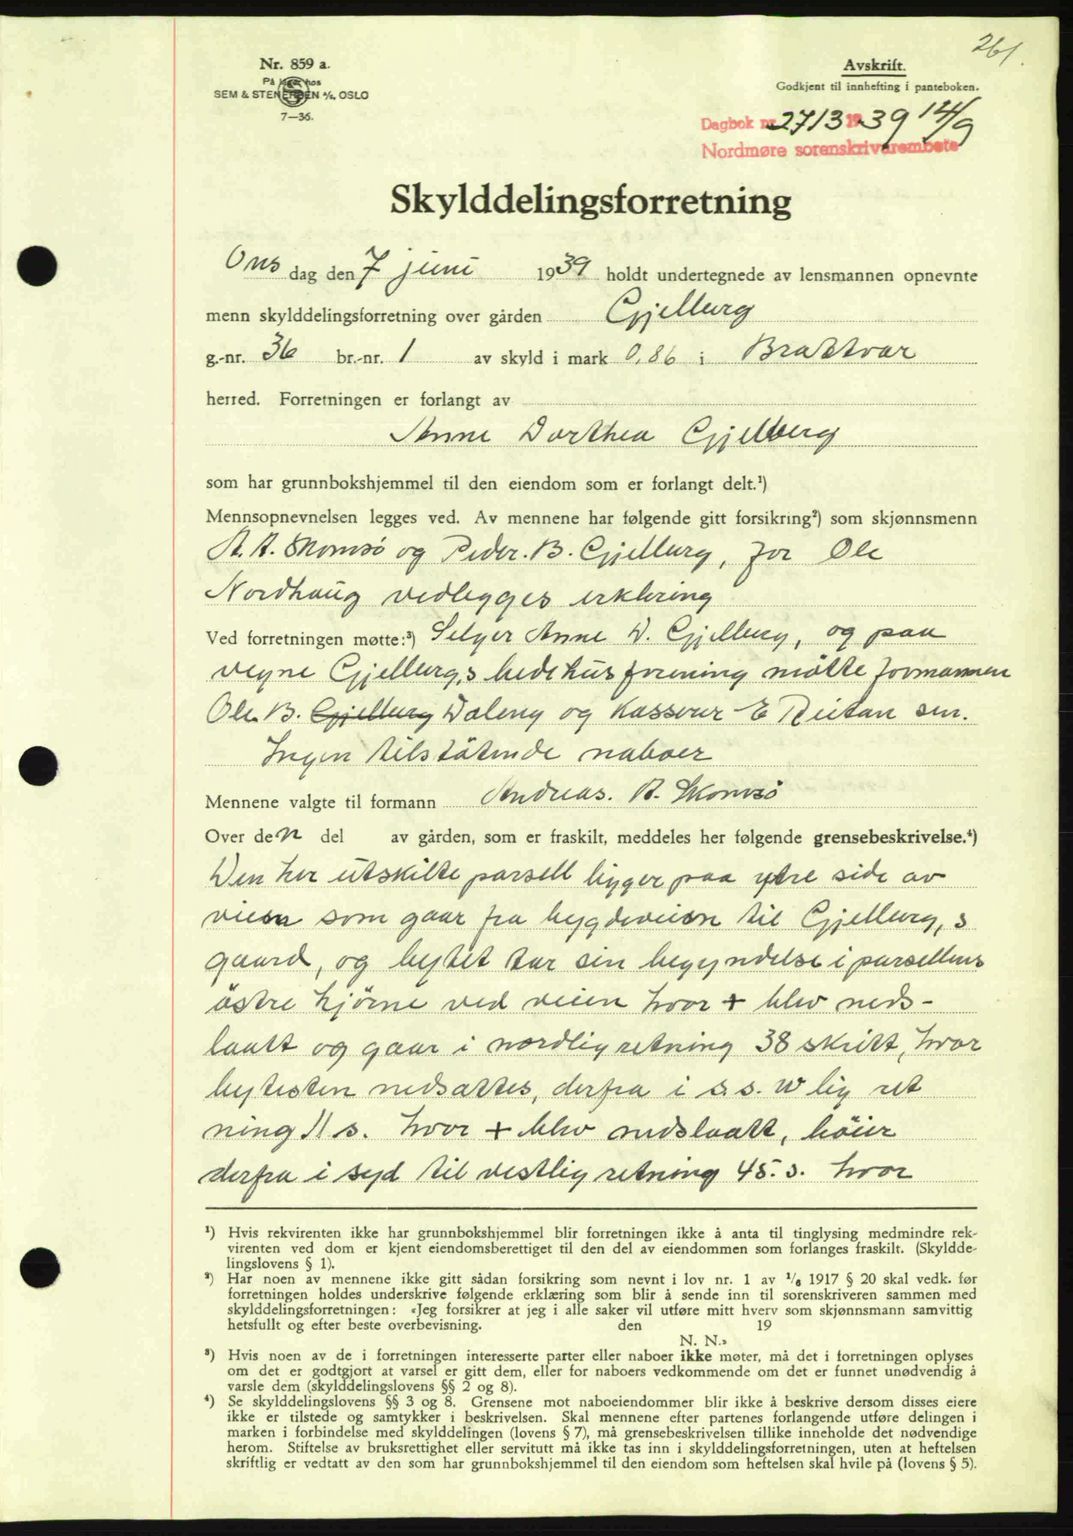 261.
Nr. 859 a.
På lager hos
SEM & STENERSEN A/S. OSLO
7—36.
Avskrift.
Godkjent til innhefting i panteboken.
Dagbok nr. 2713 1939 14/9
Nordmøre sorenskrivarembete
Skylddelingsforretning
Ons dag den 7 juni 1939 holdt undertegnede av lensmannen opnevnte
menn skylddelingsforretning over gården Gjelberg
g.-nr. 36 br.-nr. 1 av skyld i mark 0,86 i Brattvær
herred. Forretningen er forlangt av
Anne Dorthea Gjelberg
som har grunnbokshjemmel til den eiendom som er forlangt delt.¹)
Mennsopnevnelsen legges ved. Av mennene har følgende gitt forsikring²) som skjønnsmenn
A. A. Skomsö og Peder. B. Gjelberg, for Ole
Nordhaug vedlegges erklæring
Ved forretningen møtte:³) Selger Anne D. Gjelberg, og paa
vegne Gjelberg,s bedehusforening mötte formannen
Ole B. Gjelberg Daleng og Kasserer E Reitan sen.
Ingen tilstötende naboer
Mennene valgte til formann Andreas. A. Skomsö
Over den del av gården, som er fraskilt, meddeles her følgende grensebeskrivelse.⁴)
Den her utskilte parsell ligger paa ytre side av
veien som gaar fra bygdeveien til Gjelberg,s
gaard, og bytet tar sin begyndelse i parsellens
östre hjörne ved veien hvor + blev neds-
laatt og gaar i nordlig retning 38 skritt, hvor
bytesten nedsattes, derfra i s.s. w lig ret
ning 11 s. hvor + blev nedslaatt, böier
derfra i syd til vestlig retning 45. s. hvor
¹) Hvis rekvirenten ikke har grunnbokshjemmel blir forretningen ikke å anta til tinglysing medmindre rek-
virenten ved dom er kjent eiendomsberettiget til den del av eiendommen som forlanges fraskilt. (Skyldde-
lingslovens § 1).
²) Har noen av mennene ikke gitt sådan forsikring som nevnt i lov nr. 1 av ¹/₆ 1917 § 20 skal vedk. før
forretningen holdes underskrive følgende erklæring som blir å sende inn til sorenskriveren sammen med
skylddelingsforretningen: «Jeg forsikrer at jeg i alle saker vil utføre mitt hverv som skjønnsmann samvittig
hetsfullt og efter beste overbevisning. den 19
N. N.»
³) Hvis noen av de i forretningen interesserte parter eller naboer ikke møter, må det i forretningen oplyses
om det er godtgjort at varsel er gitt dem, eller for naboers vedkommende om det er funnet unødvendig å
varsle dem (skylddelingslovens §§ 2 og 8).
⁴) Se skylddelingslovens §§ 3 og 8. Grensene mot naboeiendommer blir ikke å beskrive dersom disses eiere
ikke er tilstede og samtykker i beskrivelsen. Skal mennene efter partenes forlangende utføre delingen i
marken i forbindelse med skylddelingen (lovens § 7), må grensebeskrivelsen tillike inneholde det nødvendige
herom. Stiftelse av bruksrettighet eller servitutt må ikke tas inn i skylddelingsforretningen, uten at heftelsen
skriftlig er vedtatt av den som har grunnbokshjemmel til den eiendom som heftelsen skal hvile på (lovens § 5).